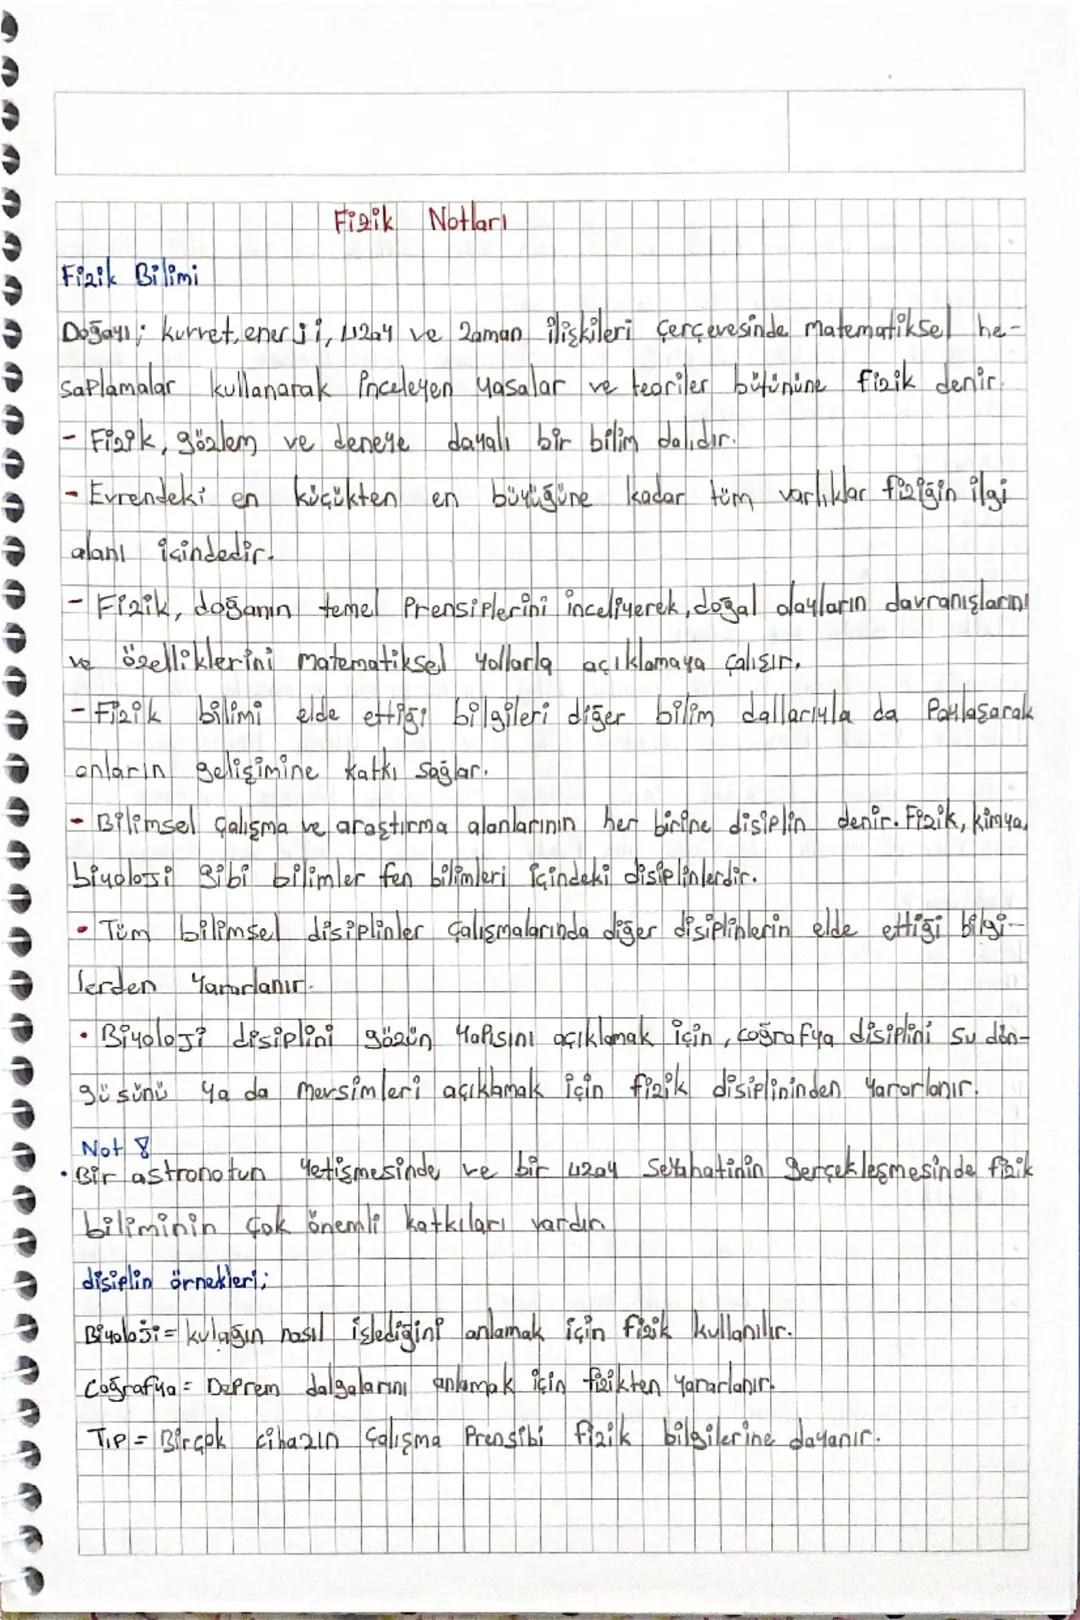 Fizik Notları
Fizik Bilimi
Doğayı; kuvvet, enerji, uzay ve zaman ilişkileri çerçevesinde matematiksel he-
saplamalar kullanarak inceleyen yasalar ve teoriler bütününe fizik denir.
- Fizik, gözlem ve deneye dayalı bir bilim dalıdır.
- Evrendeki en küçükten en büyüğüne kadar tüm varlıklar fiziğin ilgi
alanı içindedir.
- Fizik, doğanın temel prensiplerini inceliyerek, doğal olayların davranışlarını
ve özelliklerini matematiksel yollarla açıklamaya çalışır.
- Fizik bilimi elde ettiği bilgileri diğer bilim dallarıyla da paylaşarak
onların gelişimine katkı sağlar.
- Bilimsel çalışma ve araştırma alanlarının her birine disiplin denir. Fizik, kimya,
biyoloji gibi bilimler fen bilimleri içindeki disiplinlerdir.
• Tüm bilimsel disiplinler çalışmalarında diğer disiplinlerin elde ettiği bilgi-
lerden yararlanır.
• Biyoloji disiplini gözün yapısını açıklamak için, coğrafya disiplini su dön-
güsünü ya da mevsimleri açıklamak için fizik disiplininden yararlanır.
Not 8
• Bir astronotun yetişmesinde ve bir uzay seyahatinin gerçekleşmesinde fizik
biliminin çok önemli katkıları vardır.
disiplin örnekleri;
Biyoloji = kulağın nasıl işlediğini anlamak için fizik kullanılır.
Coğrafya = Deprem dalgalarını anlamak için fizikten yararlanır.
Tıp = Birçok cihazın çalışma prensibi fizik bilgilerine dayanır.